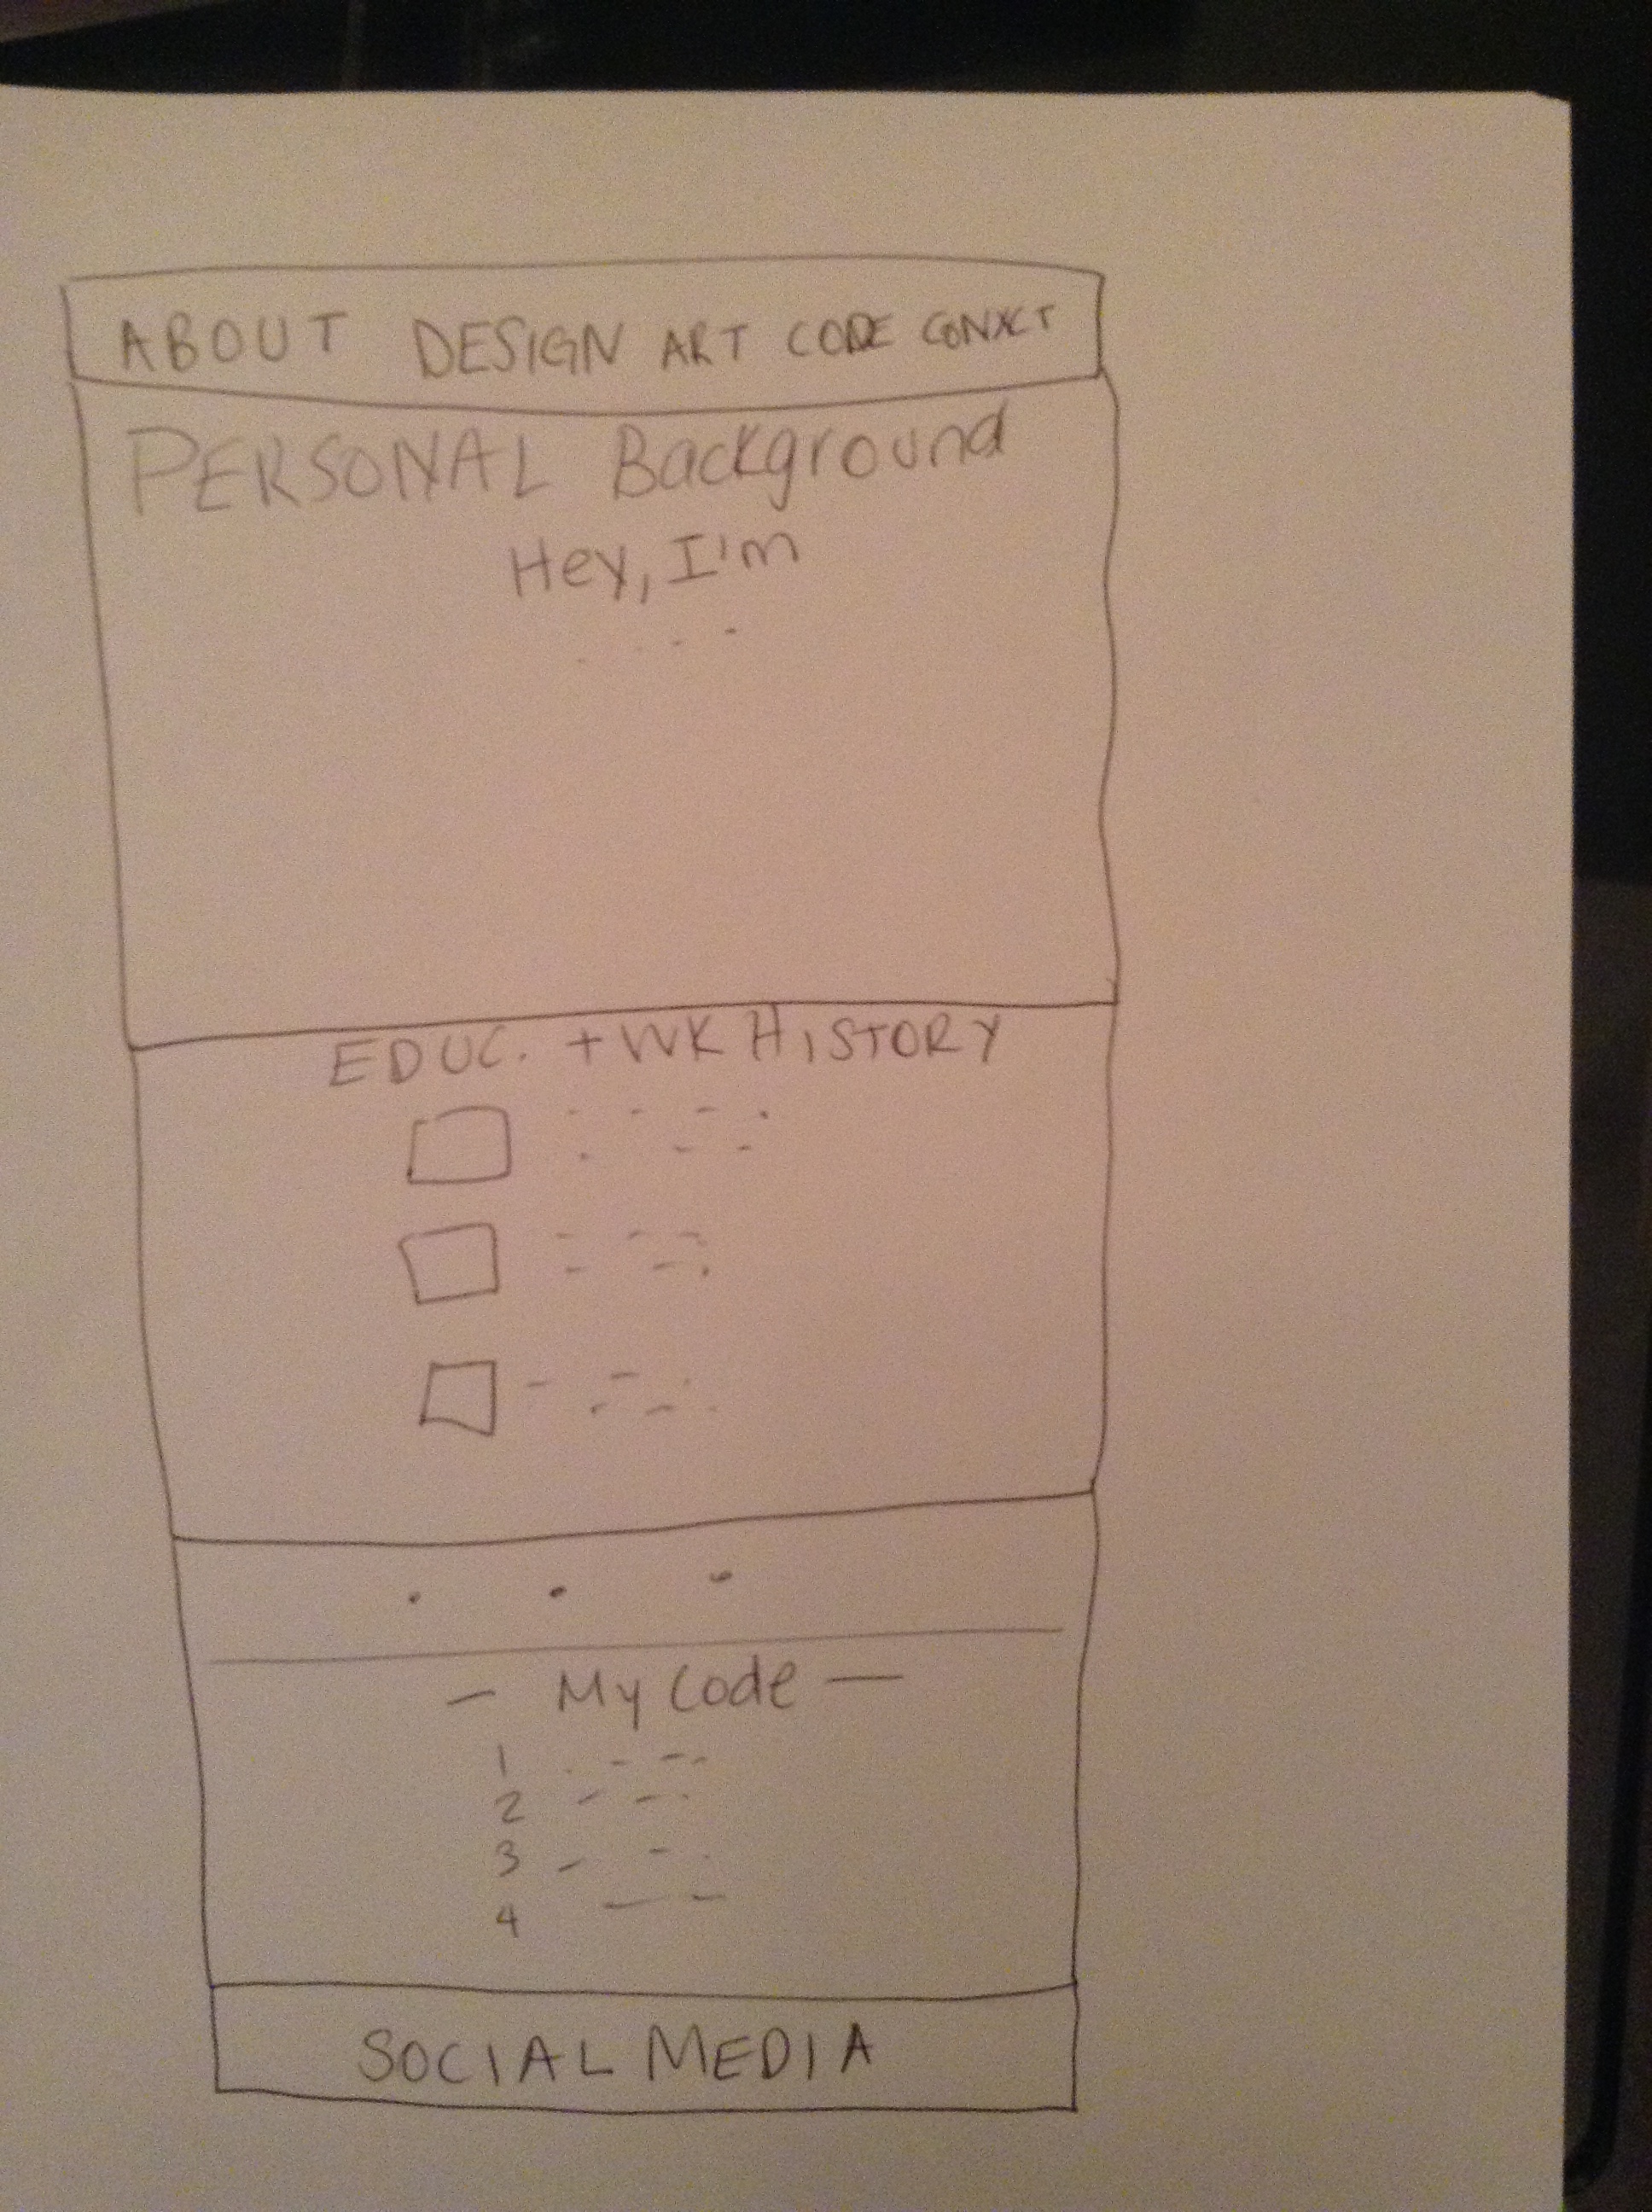 ABOUT DESIGN ART CODE
PERSONAL Background
Hey, I'm
EDUC. + WK HISTORY
— My Code —
1
2
3
4
SOCIAL MEDIA